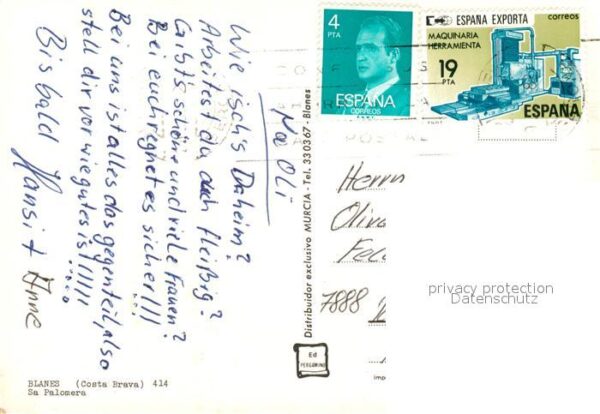 Na Oli
Wie isch's Daheim?
Arbeitest du auch fleißig?
Gibts schöne und viele Frauen?
Bei euch regnet es sicher!!!
Bei uns ist alles das gegenteil, also
stell dir vor wie gut es ist!!!!!!
Bis bald Hansi + Anne
4
PTA
ESPAÑA
CORREOS
ESPAÑA EXPORTA
correos
MAQUINARIA
HERRAMIENTA
19
PTA
ESPAÑA
Distribuidor exclusivo MURCIA - Tel. 330367 - Blanes
Herrn
7888
privacy protection
Datenschutz
Ed
PERGAMINO
BLANES (Costa Brava) 414
Sa Palomera